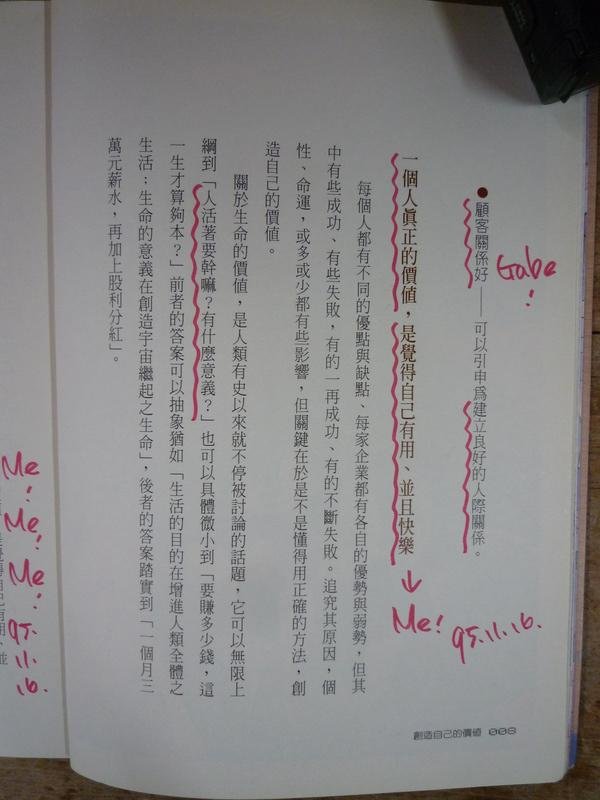 ●顧客關係好——可以引申為建立良好的人際關係。
Gabe!
一個人真正的價值，是覺得自己有用、並且快樂
→ Me! 95.11.16.
每個人都有不同的優點與缺點、每家企業都有各自的優勢與弱勢，但其
中有些成功、有些失敗，有的一再成功、有的不斷失敗。追究其原因，個
性、命運，或多或少都有些影響，但關鍵在於是不是懂得用正確的方法，創
造自己的價值。
關於生命的價值，是人類有史以來就不停被討論的話題，它可以無限上
綱到「人活著要幹嘛？有什麼意義？」也可以具體微小到「要賺多少錢，這
一生才算夠本？」前者的答案可以抽象猶如「生活的目的在增進人類全體之
生活；生命的意義在創造宇宙繼起之生命」，後者的答案踏實到「一個月三
萬元薪水，再加上股利分紅」。
創造自己的價值 008
Me!
Me!
Me!
95.
11.
16.